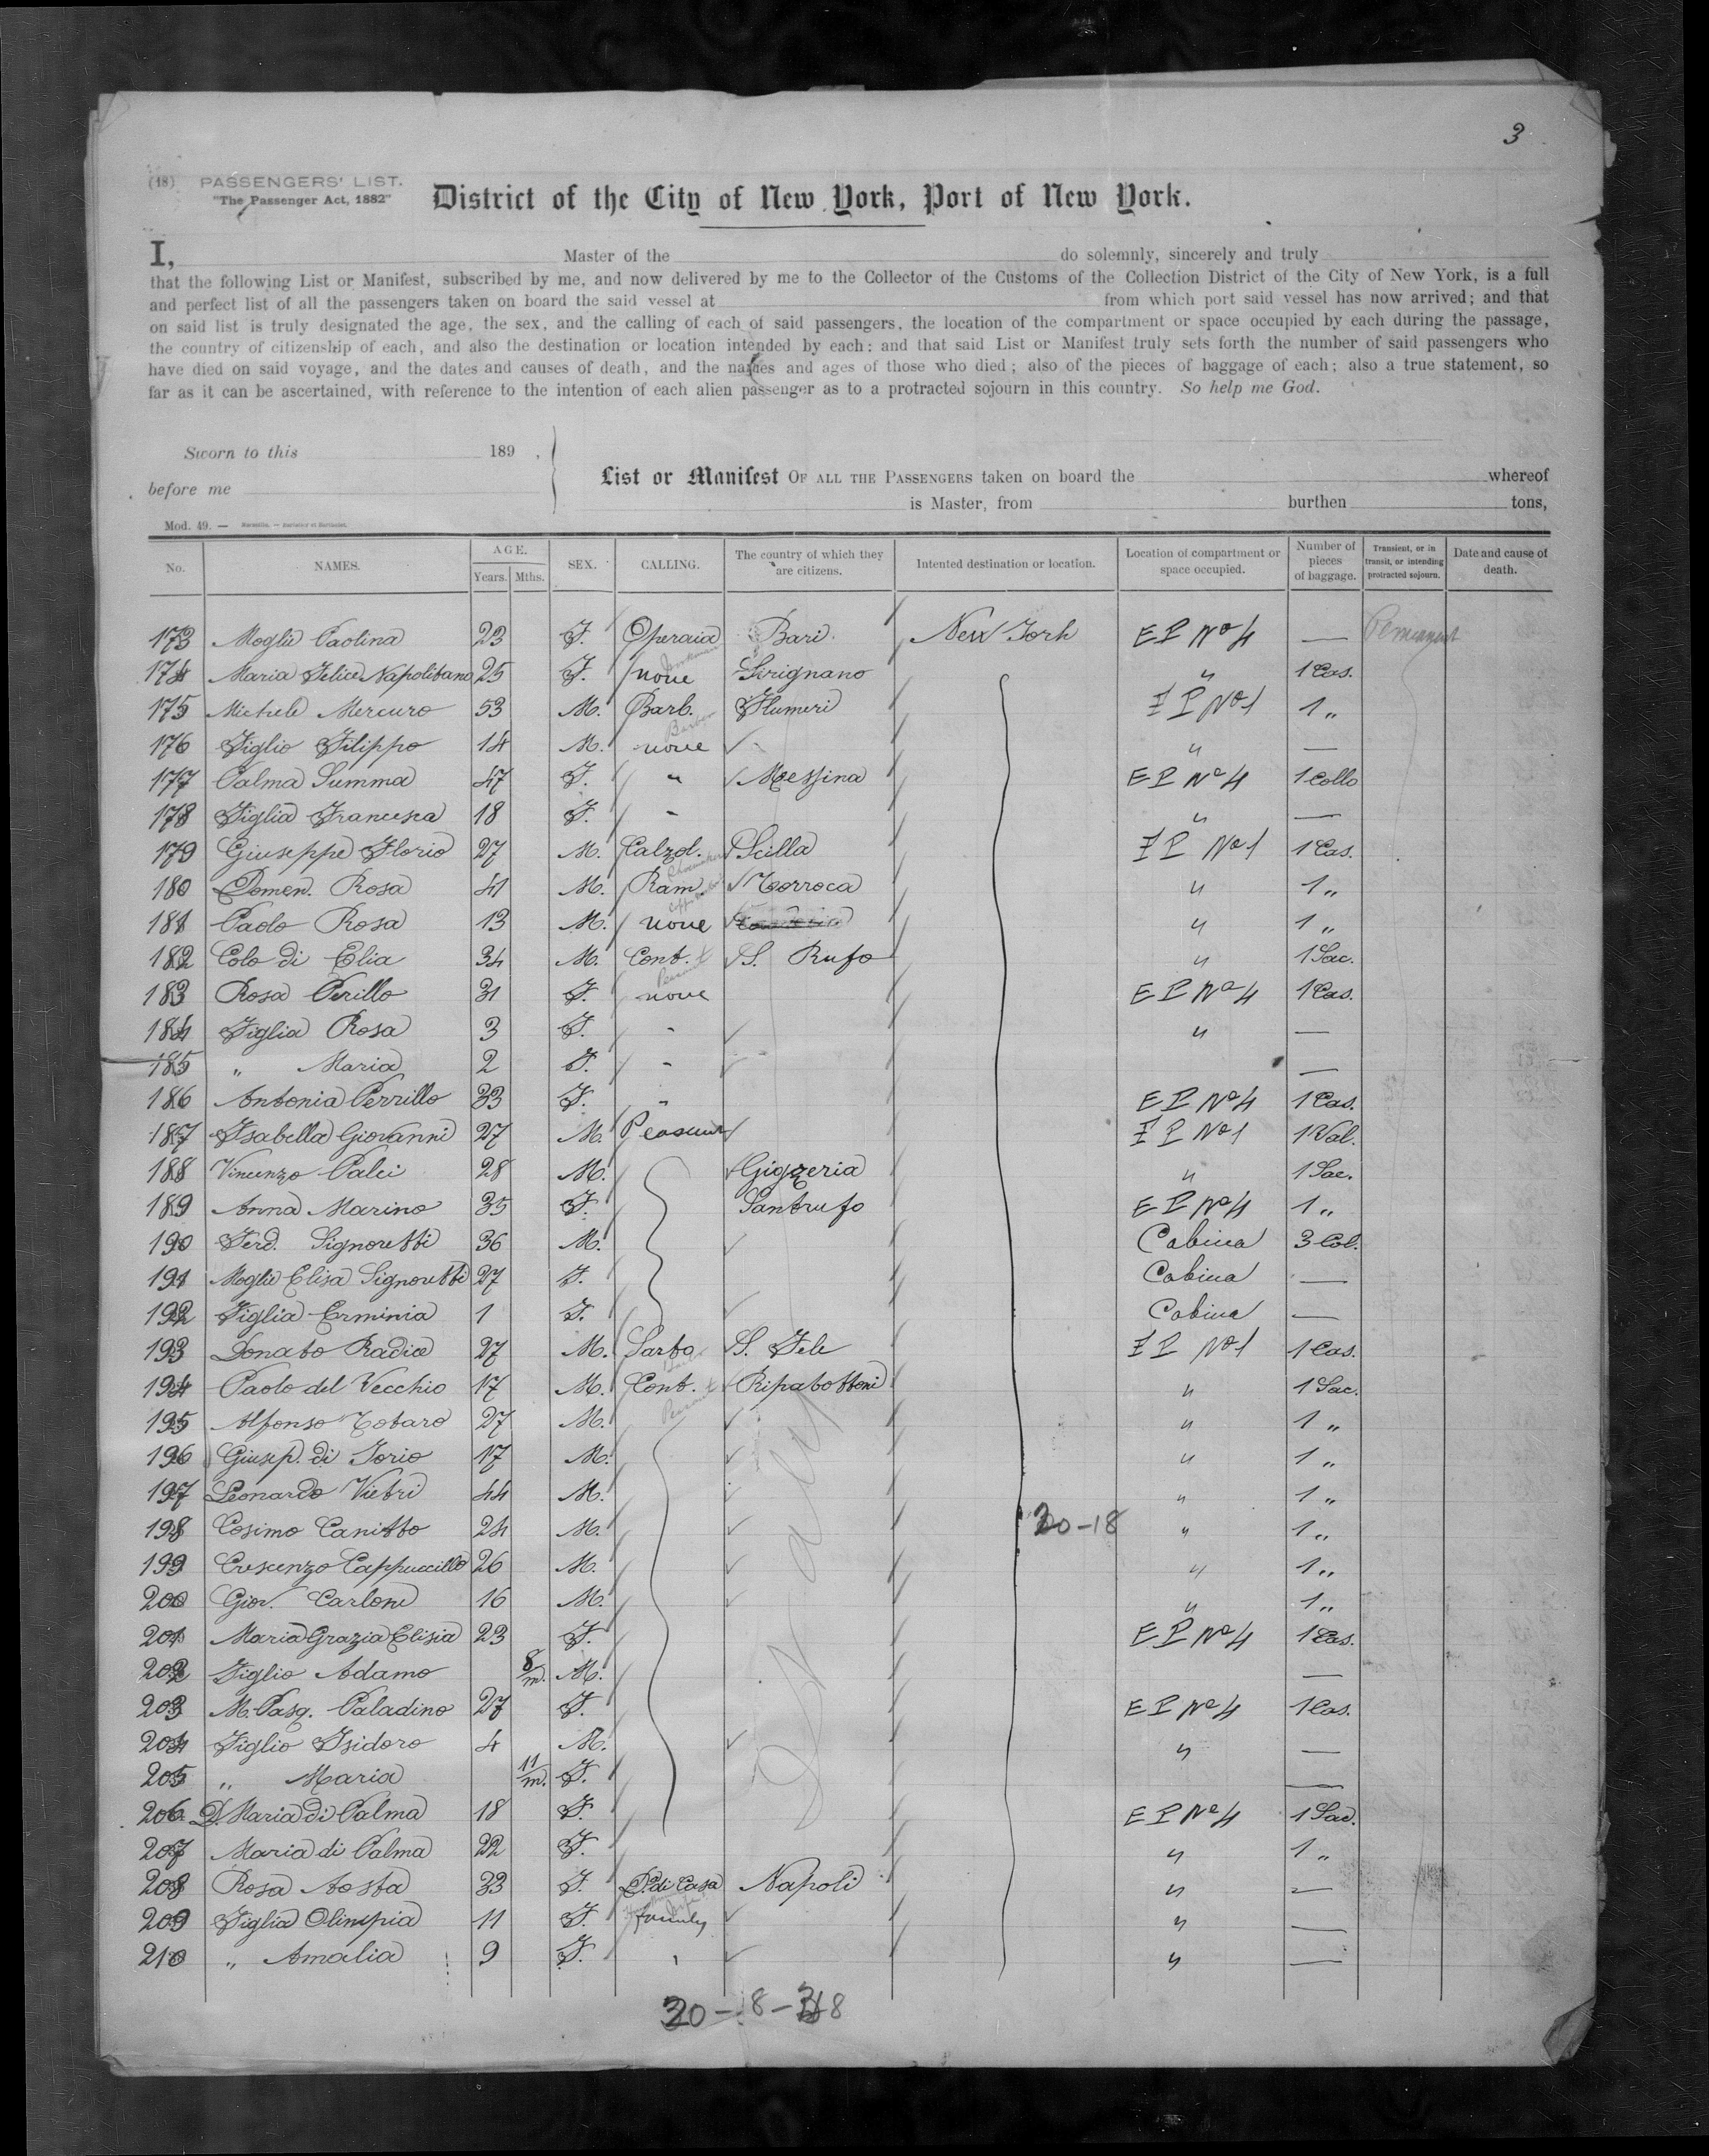 3
(18) PASSENGERS' LIST.
"The Passenger Act, 1882"
District of the City of New York, Port of New York.
I, Master of the do solemnly, sincerely and truly
that the following List or Manifest, subscribed by me, and now delivered by me to the Collector of the Customs of the Collection District of the City of New York, is a full
and perfect list of all the passengers taken on board the said vessel at from which port said vessel has now arrived; and that
on said list is truly designated the age, the sex, and the calling of each of said passengers, the location of the compartment or space occupied by each during the passage,
the country of citizenship of each, and also the destination or location intended by each: and that said List or Manifest truly sets forth the number of said passengers who
have died on said voyage, and the dates and causes of death, and the names and ages of those who died; also of the pieces of baggage of each; also a true statement, so
far as it can be ascertained, with reference to the intention of each alien passenger as to a protracted sojourn in this country. So help me God.
Sworn to this 189 ,
before me
List or Manifest OF ALL THE PASSENGERS taken on board the whereof
is Master, from burthen tons,
Mod. 49. —
No. NAMES. AGE. Years. Mths. SEX. CALLING. The country of which they are citizens. Intented destination or location. Location of compartment or space occupied. Number of pieces of baggage. Transient, or in transit, or intending protracted sojourn. Date and cause of death.
173 Moglie Paolina 23 F. Operaia Bari New York E P No 4 — Permanent
174 Maria Felice Napolitano 25 F. none Sirignano " 1 Cas.
175 Michele Mercuro 53 M. Barb. Barber Flumeri F P No 1 1 "
176 Figlio Filippo 14 M. none " —
177 Palma Summa 47 F. " Messina E P No 4 1 Collo
178 Figlia Francesca 18 F. " " —
179 Giuseppe Florio 27 M. Calzol. Shoemaker Scilla F P No 1 1 Cas.
180 Domen. Rosa 41 M. Ram. Morroca " 1 "
181 Paolo Rosa 13 M. none " 1 "
182 Colo di Elia 34 M. Cont. S. Rufo " 1 Sac.
183 Rosa Perillo 31 F. none E P No 4 1 Cas.
184 Figlia Rosa 3 F. " " —
185 " Maria 2 F. " —
186 Antonia Perrillo 33 F. " E P No 4 1 Cas.
187 Isabella Giovanni 27 M. Peasant F P No 1 1 Val.
188 Vincenzo Palci 28 M. Gigzeria " 1 Sac.
189 Anna Marino 35 F. Santrufo E P No 4 1 "
190 Ferd. Signoretti 36 M. Cabina 3 Col.
191 Moglie Elisa Signoretti 27 F. Cabina —
192 Figlia Erminia 1 F. Cabina —
193 Donato Radice 27 M. Sarto S. Fele F P No 1 1 Cas.
194 Paolo del Vecchio 17 M. Cont. Ripabottoni " 1 Sac.
195 Alfonso Totaro 27 M. " 1 "
196 Giusep. di Iorio 17 M. " 1 "
197 Leonardo Vietri 44 M. " 1 "
198 Cosimo Canitto 24 M. 20-18 " 1 "
199 Crescenzo Cappuccillo 26 M. " 1 "
200 Giov. Carlone 16 M. " 1 "
201 Maria Grazia Elisia 23 F. E P No 4 1 Cas.
202 Figlio Adamo 8/m. M. —
203 M. Pasq. Paladino 27 F. E P No 4 1 Cas.
204 Figlio Isidoro 4 M. " —
205 " Maria 11/m. F. —
206 D. Maria di Palma 18 F. E P No 4 1 Sac.
207 Maria di Palma 22 F. " 1 "
208 Rosa Aosta 33 F. D. di Casa Napoli " —
209 Figlia Olimpia 11 F. family " —
210 " Amalia 9 F. " " —
Italy